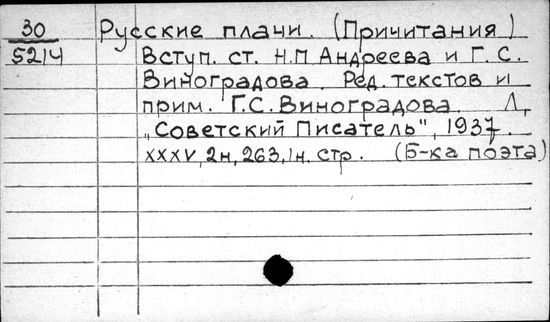 30 Русские плачи. (Причитания)
5214 Вступ. ст. Н.П Андреева и Г. С.
Виноградова. Ред. текстов и
прим. Г.С. Виноградова. Л,
„Советский Писатель", 1937.
XXXV, 2н, 263, 1н. стр. (Б-ка поэта)